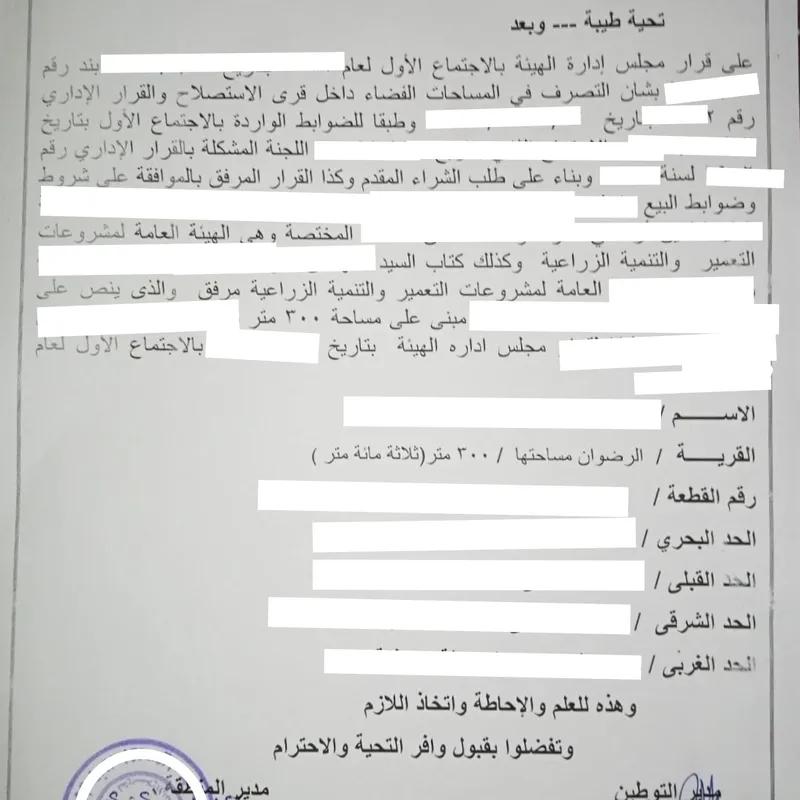 تحية طيبة --- وبعد
على قرار مجلس إدارة الهيئة بالاجتماع الأول لعام بند رقم
بشان التصرف في المساحات الفضاء داخل قرى الاستصلاح والقرار الإداري
رقم ٢ بتاريخ وطبقا للضوابط الواردة بالاجتماع الأول بتاريخ
اللجنة المشكلة بالقرار الإداري رقم
لسنة وبناء على طلب الشراء المقدم وكذا القرار المرفق بالموافقة على شروط
وضوابط البيع
المختصة وهي الهيئة العامة لمشروعات
التعمير والتنمية الزراعية وكذلك كتاب السيد
العامة لمشروعات التعمير والتنمية الزراعية مرفق والذى ينص على
مبنى على مساحة ٣٠٠ متر
مجلس اداره الهيئة بتاريخ بالاجتماع الأول لعام
الاســـــم /
القريـــــة / الرضوان مساحتها / ٣٠٠ متر(ثلاثة مائة متر )
رقم القطعة /
الحد البحري /
الحد القبلى /
الحد الشرقى /
الحد الغربى /
وهذه للعلم والإحاطة واتخاذ اللازم
وتفضلوا بقبول وافر التحية والاحترام
مدير التوطين مدير المنطقة